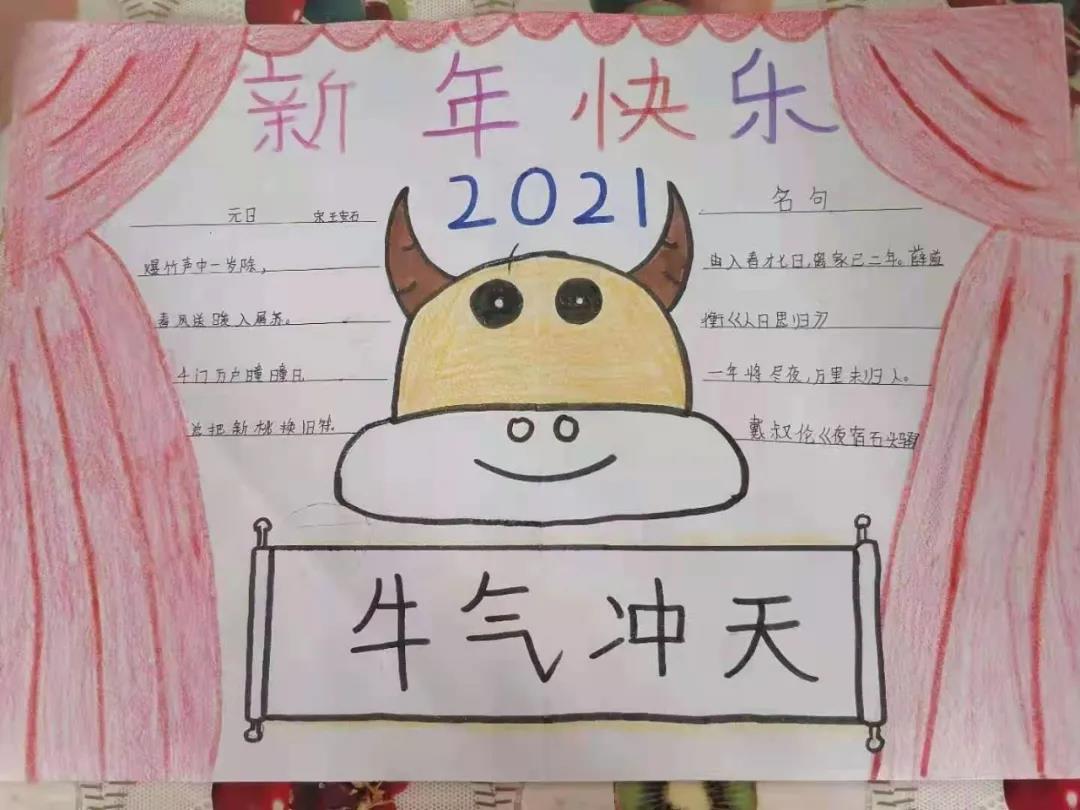 新年快乐
2021
元日 宋 王安石
爆竹声中一岁除，
春风送暖入屠苏。
千门万户瞳瞳日
总把新桃换旧符.
名句
由入春才七日，离家已二年。薛道
衡《人日思归》
一年将尽夜，万里未归人。
戴叔伦《夜宿石头驿
牛气冲天